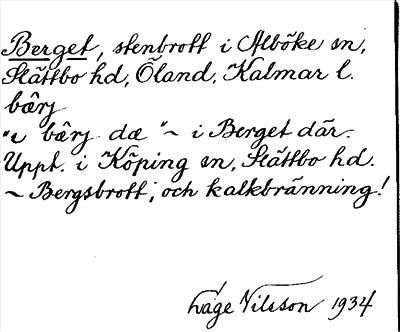 Berget, stenbrott i Alböke sn,
Slättbo hd, Öland, Kalmar l.
bærj
"ɩ bærj dæ "~ i Berget där.
Uppt. i Köping sn, Slättbo hd.
~ Bergsbrott, och kalkbränning!
Låge Nilsson 1934